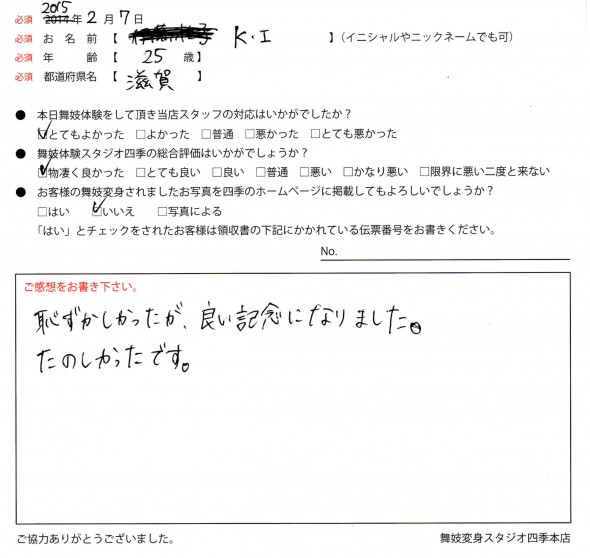 2015
必須 2014年 2月 7日
必須 お名前【 K・I 】(イニシャルやニックネームでも可)
必須 年齢【 25 歳】
必須 都道府県名【 滋賀 】
● 本日舞妓体験をして頂き当店スタッフの対応はいかがでしたか?
☑とてもよかった □よかった □普通 □悪かった □とても悪かった
● 舞妓体験スタジオ四季の総合評価はいかがでしょうか?
☑物凄く良かった □とても良い □良い □普通 □悪い □かなり悪い □限界に悪い二度と来ない
● お客様の舞妓変身されましたお写真を四季のホームページに掲載してもよろしいでしょうか?
□はい ☑いいえ □写真による
「はい」とチェックをされたお客様は領収書の下記にかかれている伝票番号をお書きください。
No.
ご感想をお書き下さい。
恥ずかしかったが、良い記念になりました。
たのしかったです。
ご協力ありがとうございました。 舞妓変身スタジオ四季本店